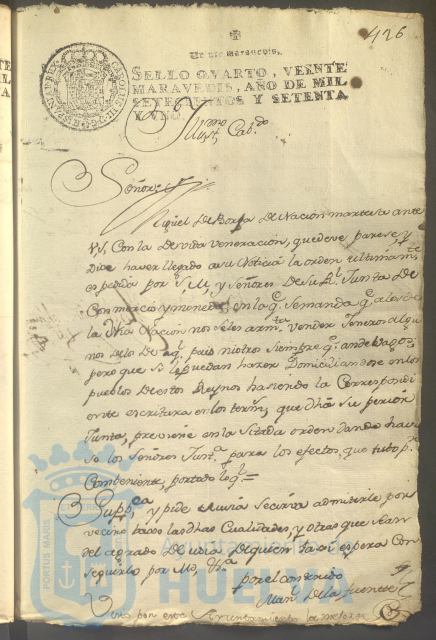 426
Veinte maravedis.
SELLO QVARTO, VEINTE
MARAVEDIS, AÑO DE MIL
SETECIENTOS Y SETENTA
Y VNO.
Cab.do
Señor
Miguel De Borja De Nación martesa ante
VS. Con la Devida veneracion, que deve parese, y
Dise haver llegado a su Noticia la orden ultimam.te
espedida por S. M. y Señores De su R.l Junta De
Comercio y moneda en la q.e se manda q.e a los De
la Dha Nacion no se les vender Generos algu
nos De lo De aq.l pais ni otros siempre q.e anden vagos
pero que si lo puedan hazer Domiciliandose en los
pueblos De estos Reynos hasiendo la Correspondi
ente escritura en los term.s que Dha Superior
Junta, previene en la Sitada orden Dando
se los Señores para los efectos, que tubo p.r
Combeniente, por tado lo q.l =
Supp.ca y pide a se sirva admitirle por
vecino bajo las dhas Cualidades, y otras que sean
del agrado De De quien asi espera Con
seguirlo por
por el contenido
Man.l de la fuente
PORTUS MARIS
Ayuntamiento de
HUELVA